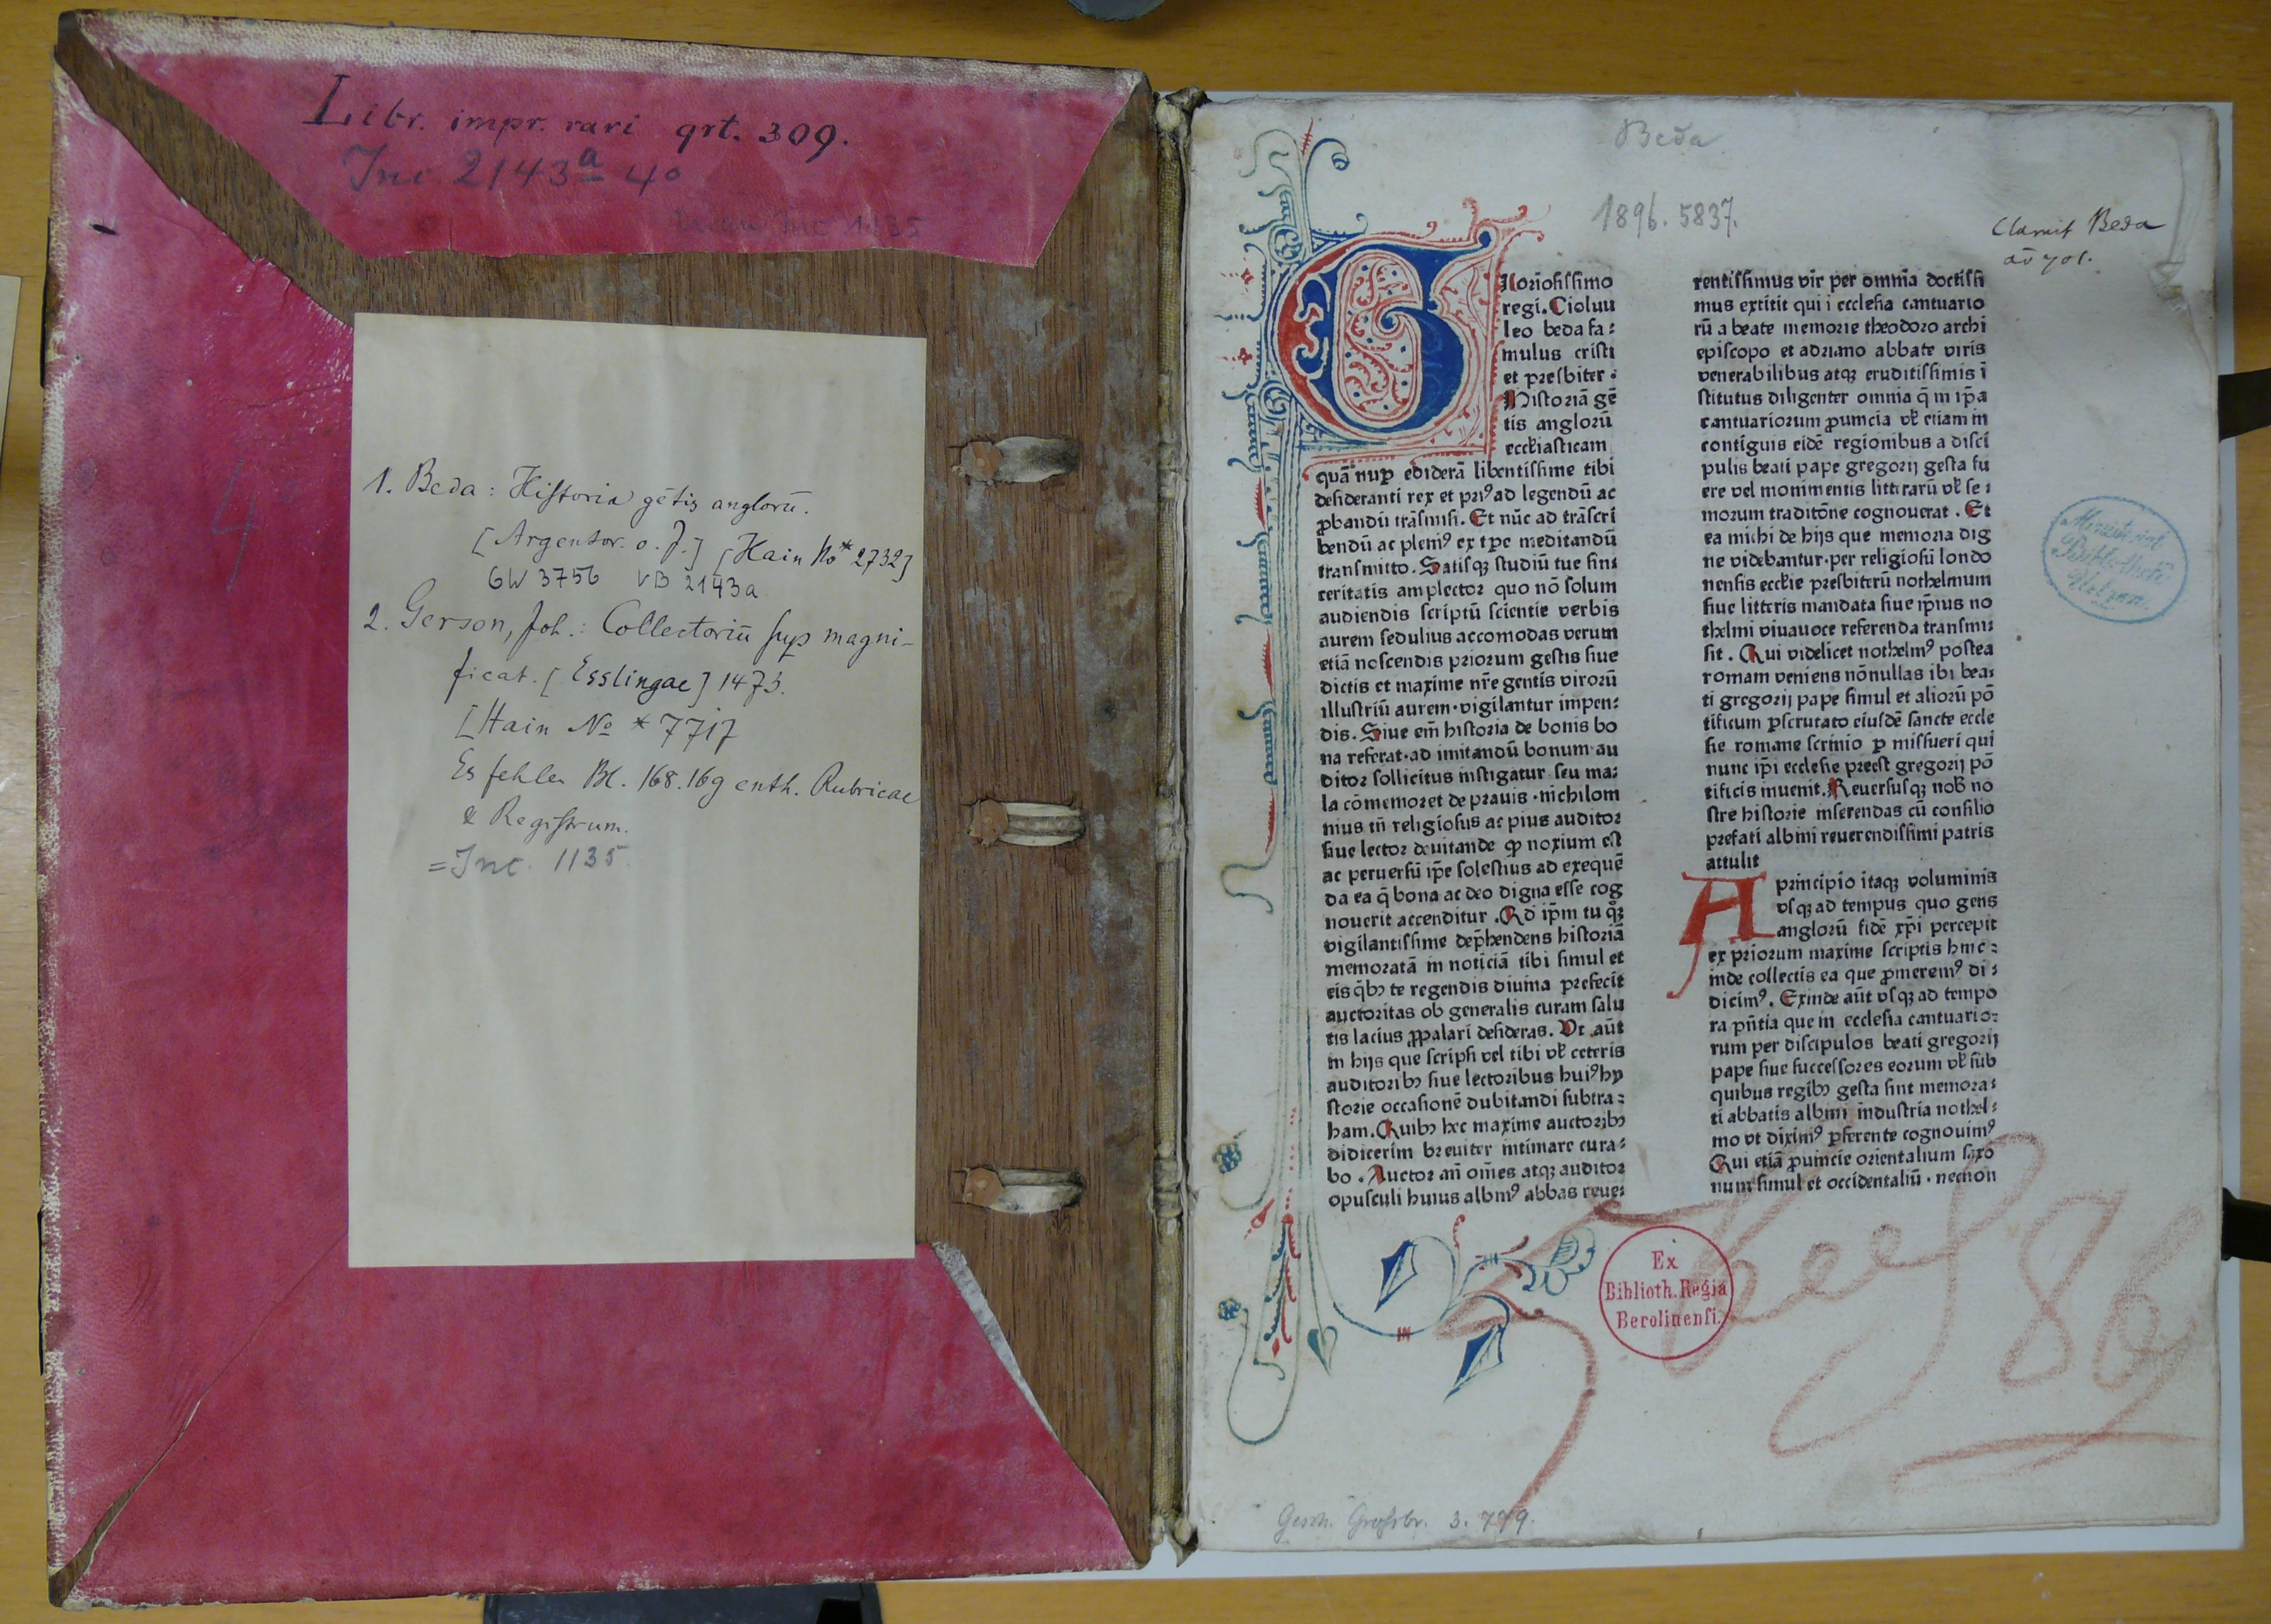 Libr. impr. rari qrt. 309.
Inc 2143a 4o
Inc 1135
4o
1. Beda: Historia gētis anglorū.
[Argentor. o. J.] [Hain No * 2732]
GW 3756 VB 2143a
2. Gerson, Joh.: Collectoriū sup magni-
ficat. [Esslingae] 1473.
[Hain No * 7717
Es fehlen Bl. 168.169 enth. Rubricae
& Registrum.
=Inc. 1135
Beda
1896. 5837.
Claruit Beda
Gloriosissimo
regi. Cioluu
leo beda fa:
mulus cristi
et presbiter.
Historiā gē
tis anglorū
eccłiasticam
quā nuꝑ ediderā libentissime tibi
desideranti rex et priꝰ ad legendū ac
ꝓbandū trāsmisi. Et nūc ad trāscri
bendū ac pleniꝰ ex tꝑe meditandū
transmitto. Satisqꝫ studiū tue sin:
ceritatis amplector quo nō solum
audiendis scriptū scientie verbis
aurem sedulius accomodas verum
etiā noscendis priorum gestis siue
dictis et maxime nr̄e gentis virorū
illustriū aurem·vigilantur impen:
dis. Siue em̄ historia de bonis bo
na referat·ad imitandū bonum au
ditor sollicitus instigatur seu ma:
la cōmemoret de prauis·nichilom
nius tn̄ religiosus ac pius auditor
siue lector deuitando ꝙ noxium est
ac peruersū ip̄e solestius ad exequē
da ea q̄ bona ac deo digna esse cog
nouerit accenditur. Qd ip̄m tu qꝫ
vigilantissime dep̄hendens historiā
memoratā in noticiā tibi simul et
eis q̄bꝫ te regendis diuina prefecit
auctoritas ob generalis curam salu
tis lacius ꝓpalari desideras. Vt aūt
in hijs que scripsi vel tibi vł ceteris
auditoribꝫ siue lectoribus huiꝰ hy
storie occasionē dubitandi subtra:
ham. Quibꝫ hec maxime auctoribꝫ
didicerim breuiter intimare cura:
bo. Auctor an̄ om̄es atqꝫ auditor
opusculi huius albinꝰ abbas reue:
rentissimus vir per omnia doctissi
mus extitit qui i ecclesia cantuario
rū a beate memorie theodoro archi
episcopo et adriano abbate viris
venerabilibus atqꝫ eruditissimis ī
stitutus diligenter omnia q̄ in ip̄a
cantuariorum ꝓuincia vł etiam in
contiguis eidē regionibus a disci
pulis beati pape gregorij gesta fu
ere vel monimentis litterarū vł se:
morum traditōne cognouerat. Et
ea michi de hijs que memoria dig
ne videbantur·per religiosū londo
nensis eccłie presbiterū nothelmum
siue litteris mandata siue ip̄ius no
thelmi viuauoce referenda transmi:
sit. Qui videlicet nothelmꝰ postea
romam veniens nōnullas ibi bea:
ti gregorij pape simul et aliorū pō
tificum ꝑscrutato eiusdē sancte eccle
sie romane scrinio ꝑ missueri qui
nunc ip̄i ecclesie preest gregorij pō
tificis inuenit. Reuersusqꝫ nob̄ no
stre historie inserendas cū consilio
prefati albini reuerendissimi patris
attulit
A principio itaqꝫ voluminis
vsqꝫ ad tempus quo gens
anglorū fidē xp̄i percepit
ex priorum maxime scriptis hinc:
inde collectis ea que ꝓmeremꝰ di:
dicimꝰ. Exinde aūt vsqꝫ ad tempo
ra pn̄tia que in ecclesia cantuario:
rum per discipulos beati gregorij
pape siue successores eorum vł sub
quibus regibꝫ gesta sint memora:
ti abbatis albini industria nothel:
mo vt diximꝰ ꝑferente cognouimꝰ
Qui etiā ꝓuincie orientalium saxo
num simul et occidentaliū·necnon
Ex
Biblioth. Regia
Berolinensi.
86
Gesch. Grossbr. 3. 779.